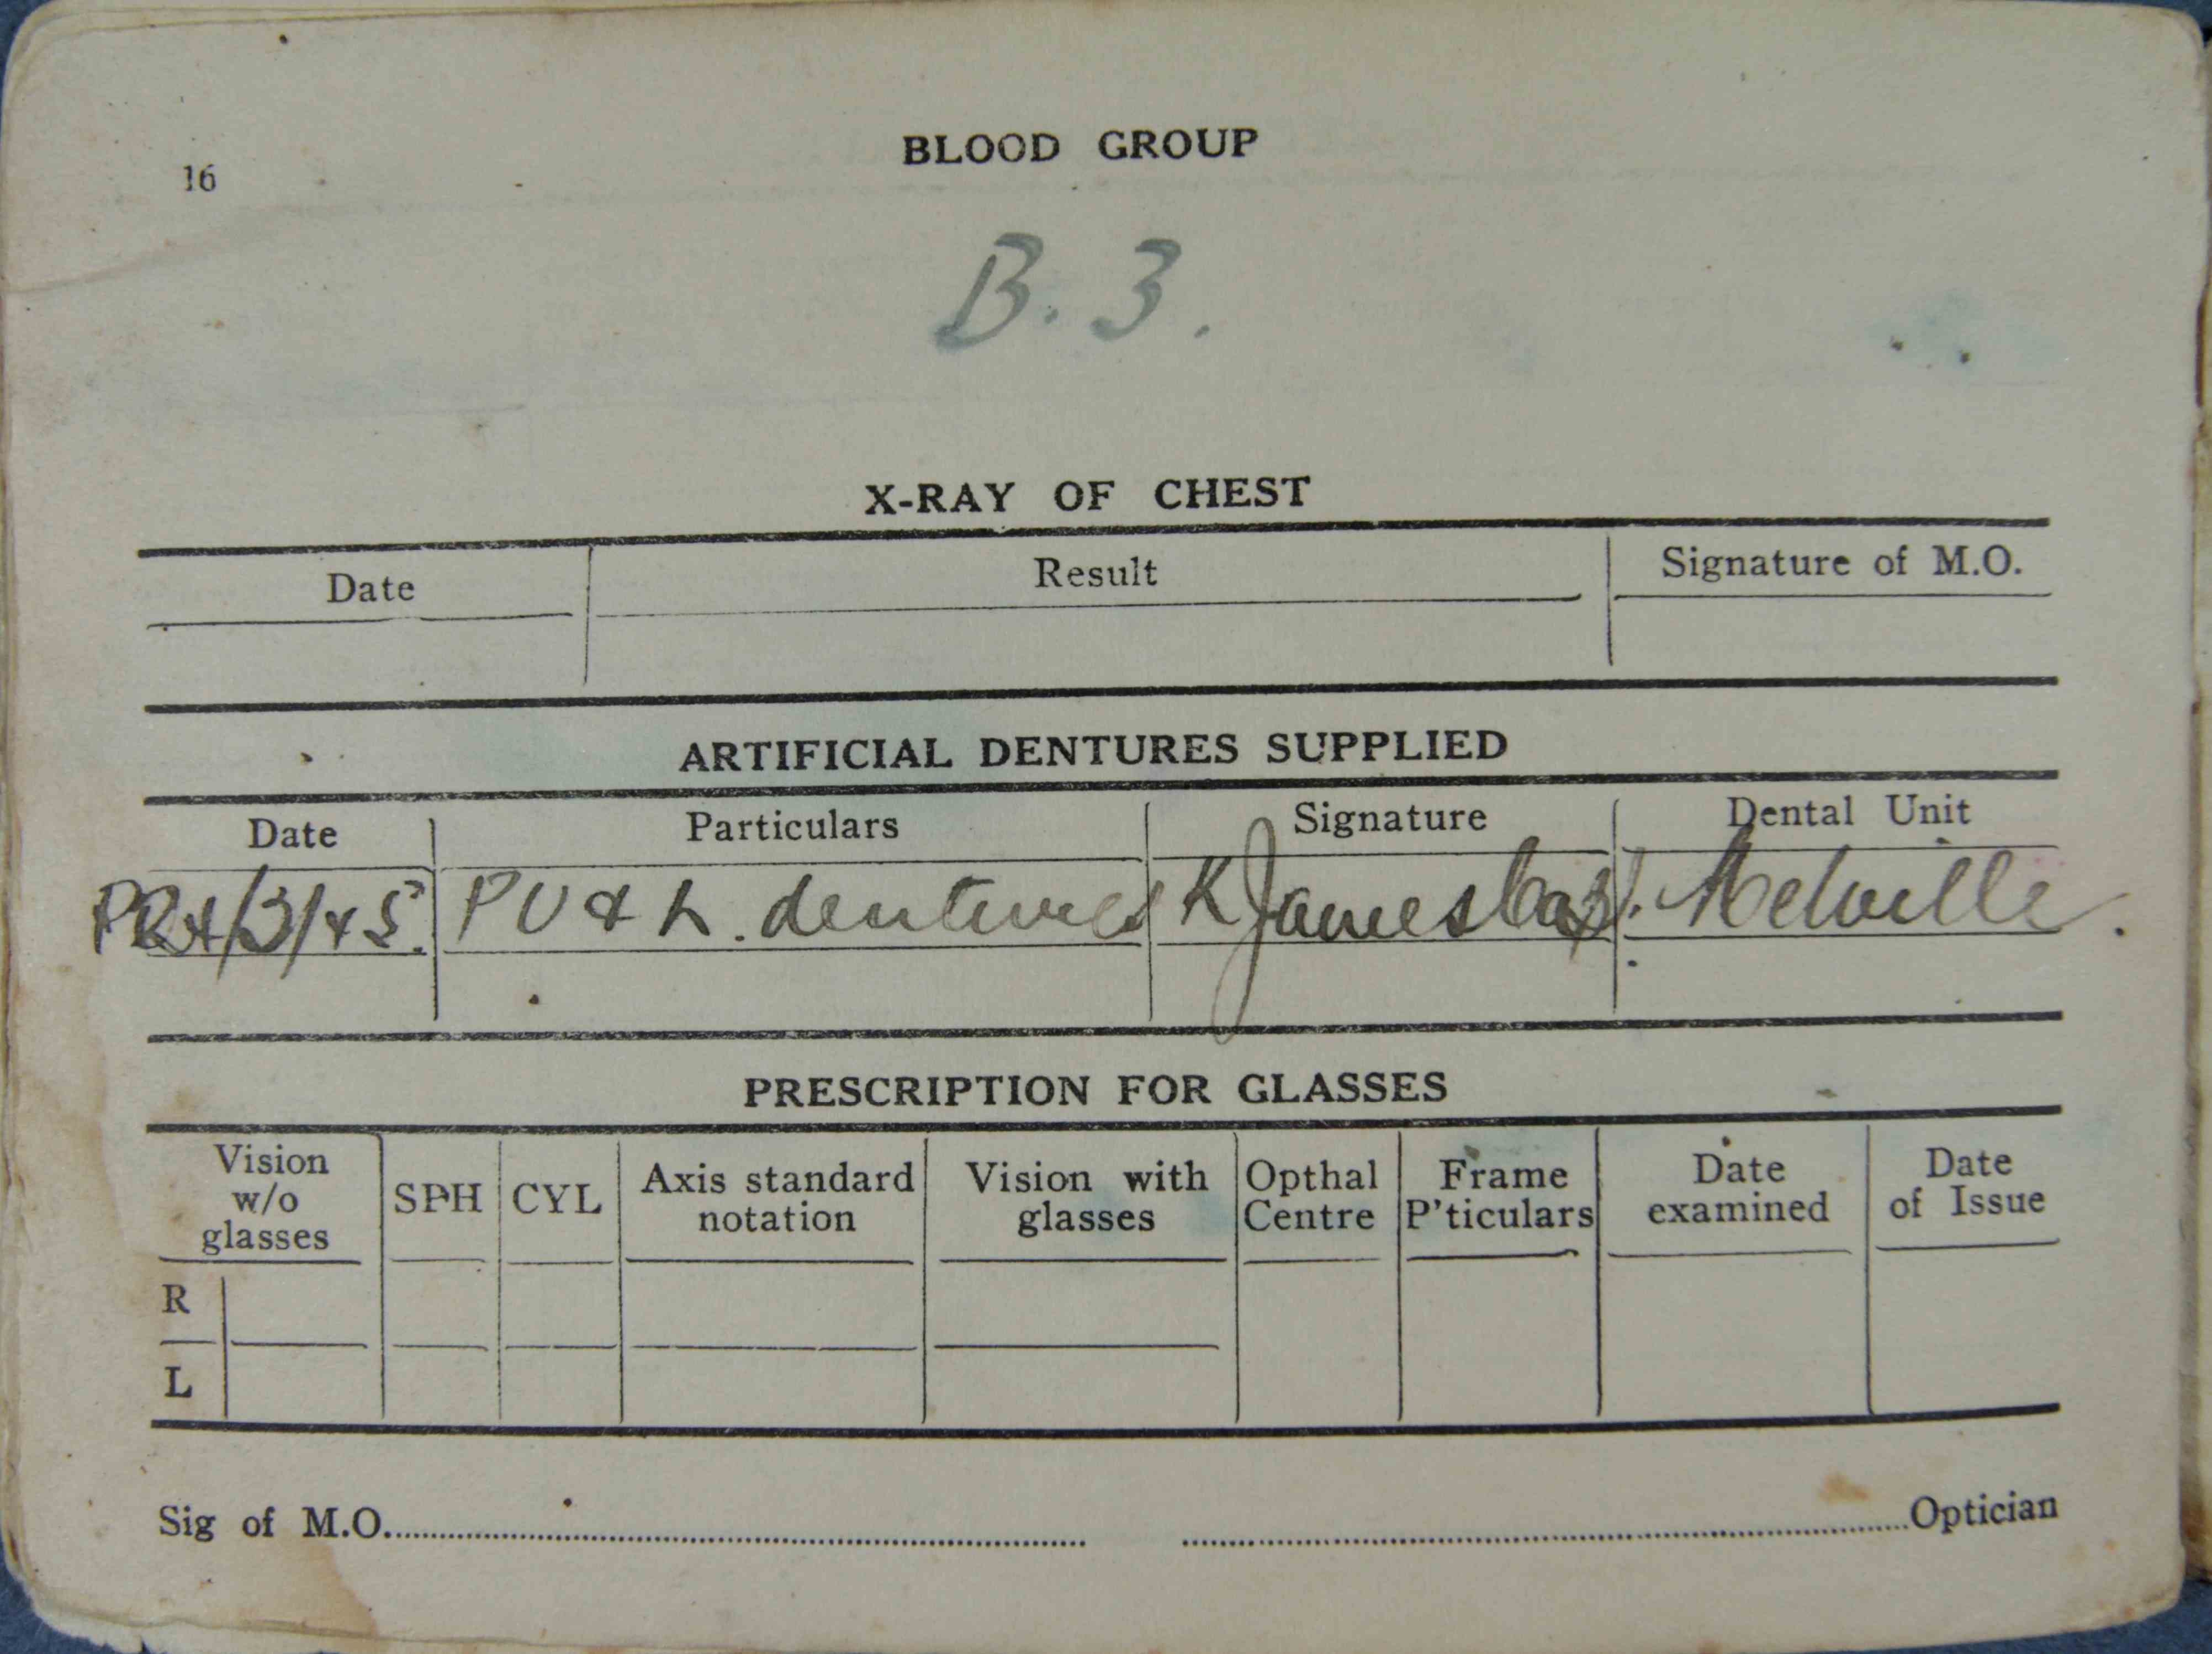 16
BLOOD GROUP
B. 3.
X-RAY OF CHEST
Date Result Signature of M.O.
ARTIFICIAL DENTURES SUPPLIED
Date Particulars Signature Dental Unit
PU & L. dentures K James Capt. Melville.
PRESCRIPTION FOR GLASSES
Vision w/o glasses SPH CYL Axis standard notation Vision with glasses Opthal Centre Frame P'ticulars Date examined Date of Issue
R
L
Sig of M.O. Optician